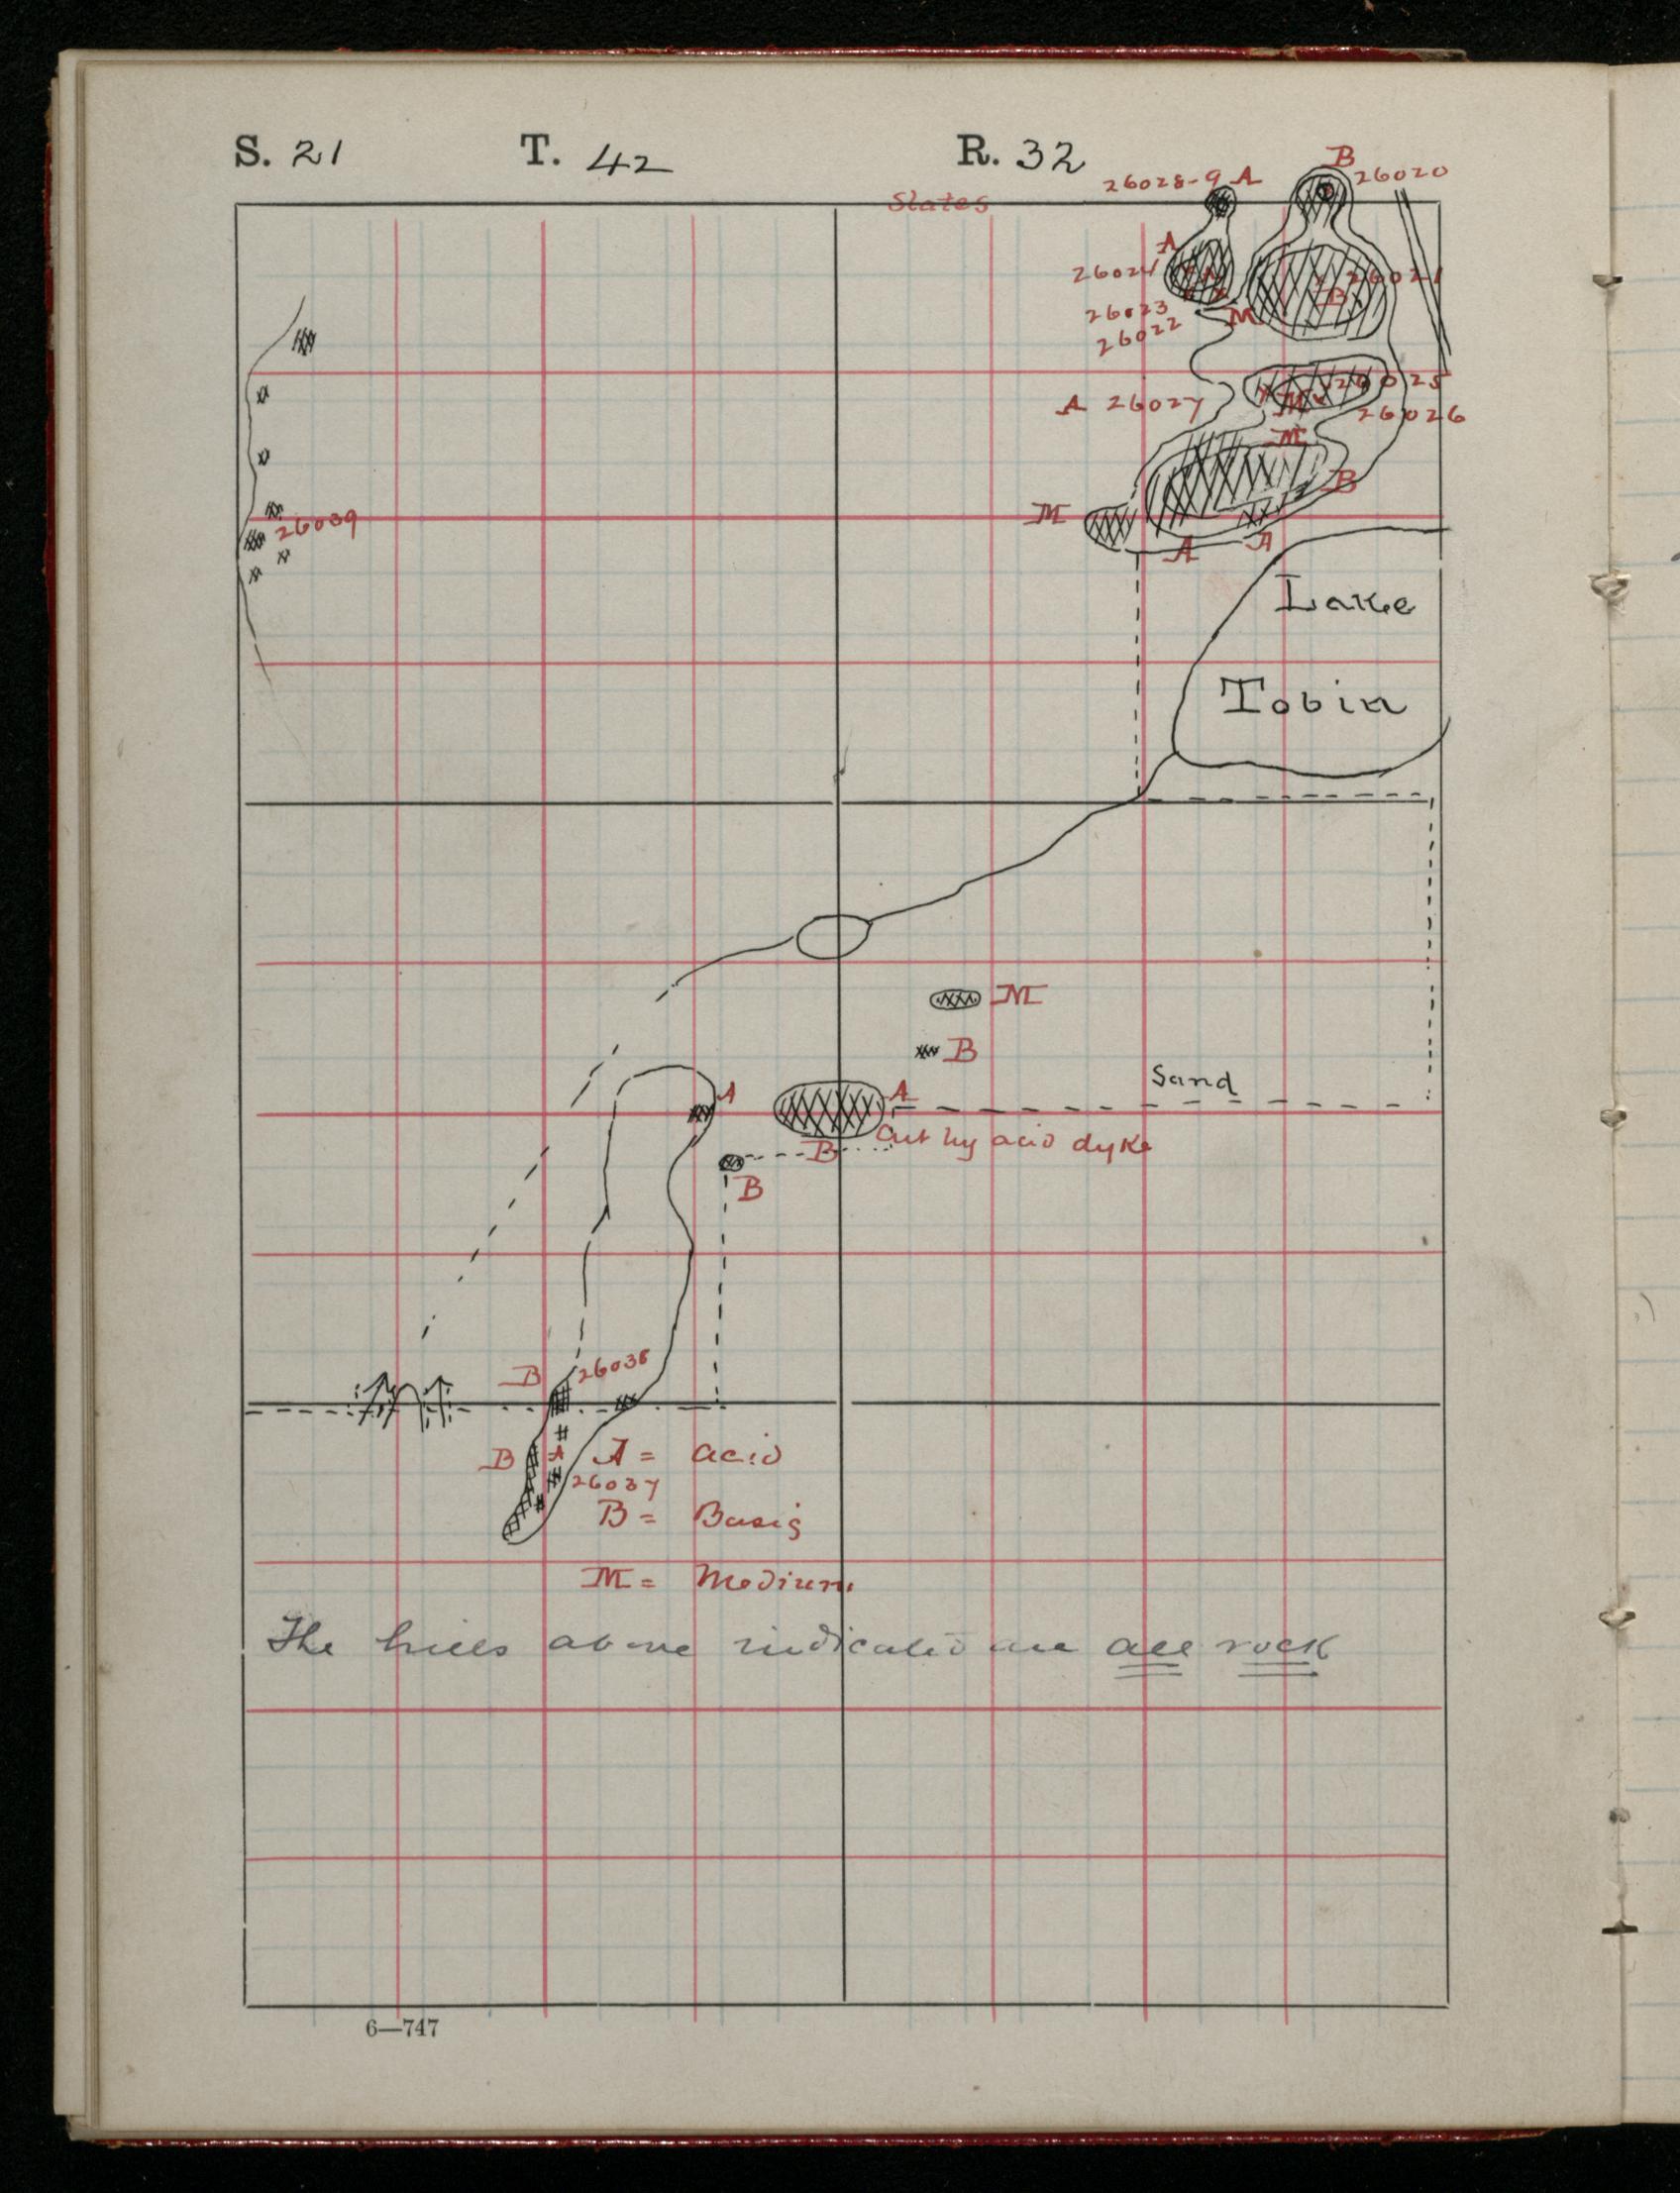 S. 21 T. 42 R. 32
B
26028-9 A 26020
Slates
A
26024 26021
B
26023 M
26022
26025
A 26027 M 26026
M
B
M 26039
A A
Lake
Tobin
M
B
Sand
A A
Cut by acid dyke
B
B
B 26038
B A A = acid
26037
B = Basic
M = Medium
The hills above indicated are all rock
6—747